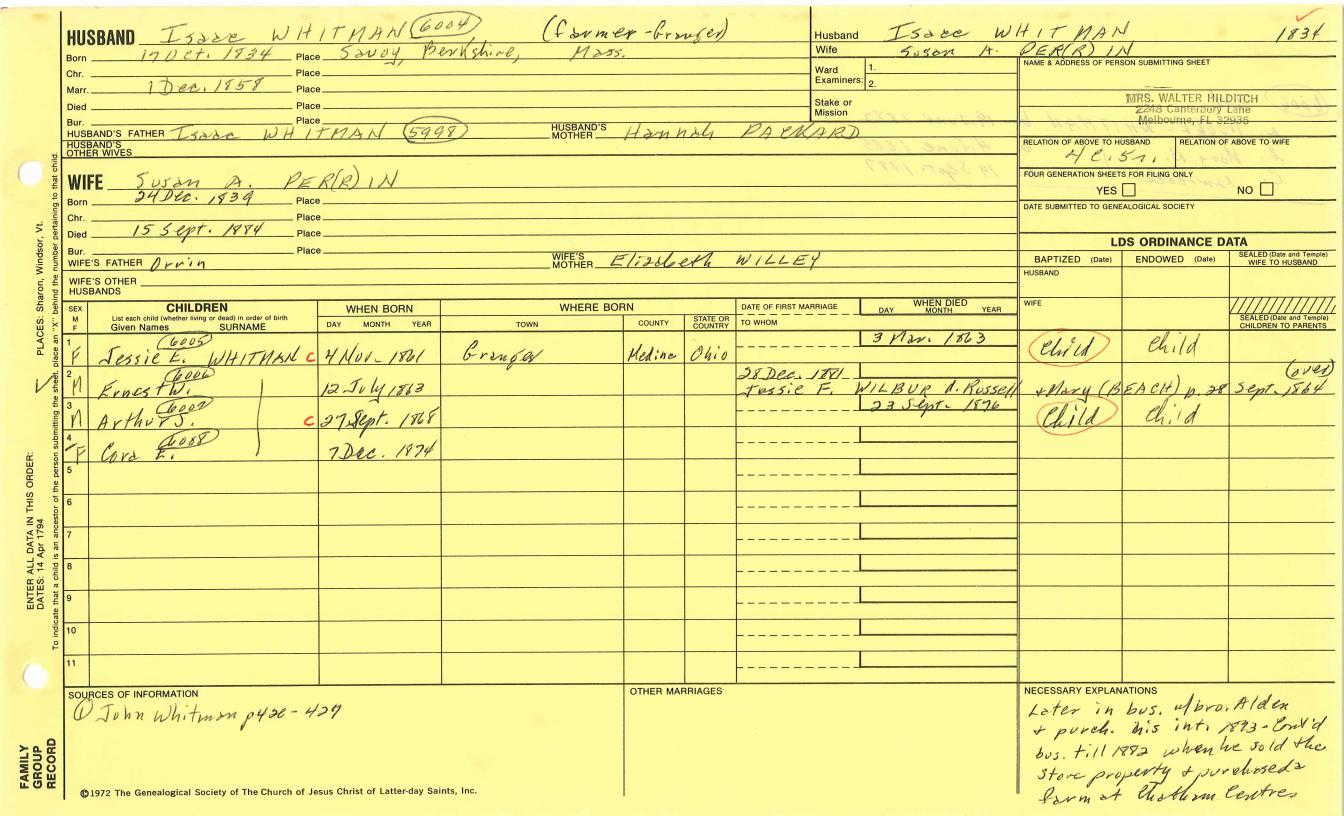 HUSBAND Isaac WHITMAN 6004 (farmer-Granger)
Born 17 Oct. 1834 Place Savoy, Berkshire, Mass.
Chr. Place
Marr. 1 Dec. 1858 Place
Died Place
Bur. Place
HUSBAND'S FATHER Isaac WHITMAN 5998 HUSBAND'S MOTHER Hannah PACKARD
HUSBAND'S OTHER WIVES
WIFE Susan A. PER(R)IN
Born 24 Dec. 1839 Place
Chr. Place
Died 15 Sept. 1894 Place
Bur. Place
WIFE'S FATHER Orrin WIFE'S MOTHER Elizabeth WILLEY
WIFE'S OTHER HUSBANDS
Husband Isaac WHITMAN 1834
Wife Susan A. PER(R)IN
Ward Examiners: 1.
2.
Stake or Mission
NAME & ADDRESS OF PERSON SUBMITTING SHEET
MRS. WALTER HILDITCH
2248 Canterbury Lane
Melbourne, FL 32935
RELATION OF ABOVE TO HUSBAND RELATION OF ABOVE TO WIFE
FOUR GENERATION SHEETS FOR FILING ONLY
YES NO
DATE SUBMITTED TO GENEALOGICAL SOCIETY
LDS ORDINANCE DATA
BAPTIZED (Date) ENDOWED (Date) SEALED (Date and Temple) WIFE TO HUSBAND
HUSBAND
WIFE
SEALED (Date and Temple) CHILDREN TO PARENTS
SEX M F
CHILDREN
List each child (whether living or dead) in order of birth
Given Names SURNAME
WHEN BORN
DAY MONTH YEAR
WHERE BORN
TOWN COUNTY STATE OR COUNTRY
DATE OF FIRST MARRIAGE
TO WHOM
WHEN DIED
DAY MONTH YEAR
1 F Jessie E. WHITMAN 6005 C 4 Nov. 1861 Granger Medina Ohio 3 Mar. 1863 Child Child
2 M Ernest W. 6006 12 July 1863 28 Dec. 1881 (over)
Jessie F. WILBUR d. Russell + Mary (BEACH) b. 28 Sept. 1864
3 M Arthur S. 6007 C 27 Sept. 1868 23 Sept. 1876 Child Child
4 F Cora E. 6008 7 Dec. 1874
5
6
7
8
9
10
11
SOURCES OF INFORMATION
① John Whitman p426-427
OTHER MARRIAGES
NECESSARY EXPLANATIONS
Later in bus. w/bro. Alden
+ purch. his int. 1873-Cont'd
bus. till 1882 when he sold the
store property + purchased a
farm at Chatham Centre
©1972 The Genealogical Society of The Church of Jesus Christ of Latter-day Saints, Inc.
FAMILY GROUP RECORD
ENTER ALL DATA IN THIS ORDER:
DATES: 14 Apr 1794
PLACES: Sharon, Windsor, Vt.
To indicate that a child is an ancestor of the person submitting the sheet, place an "X" behind the number pertaining to that child.